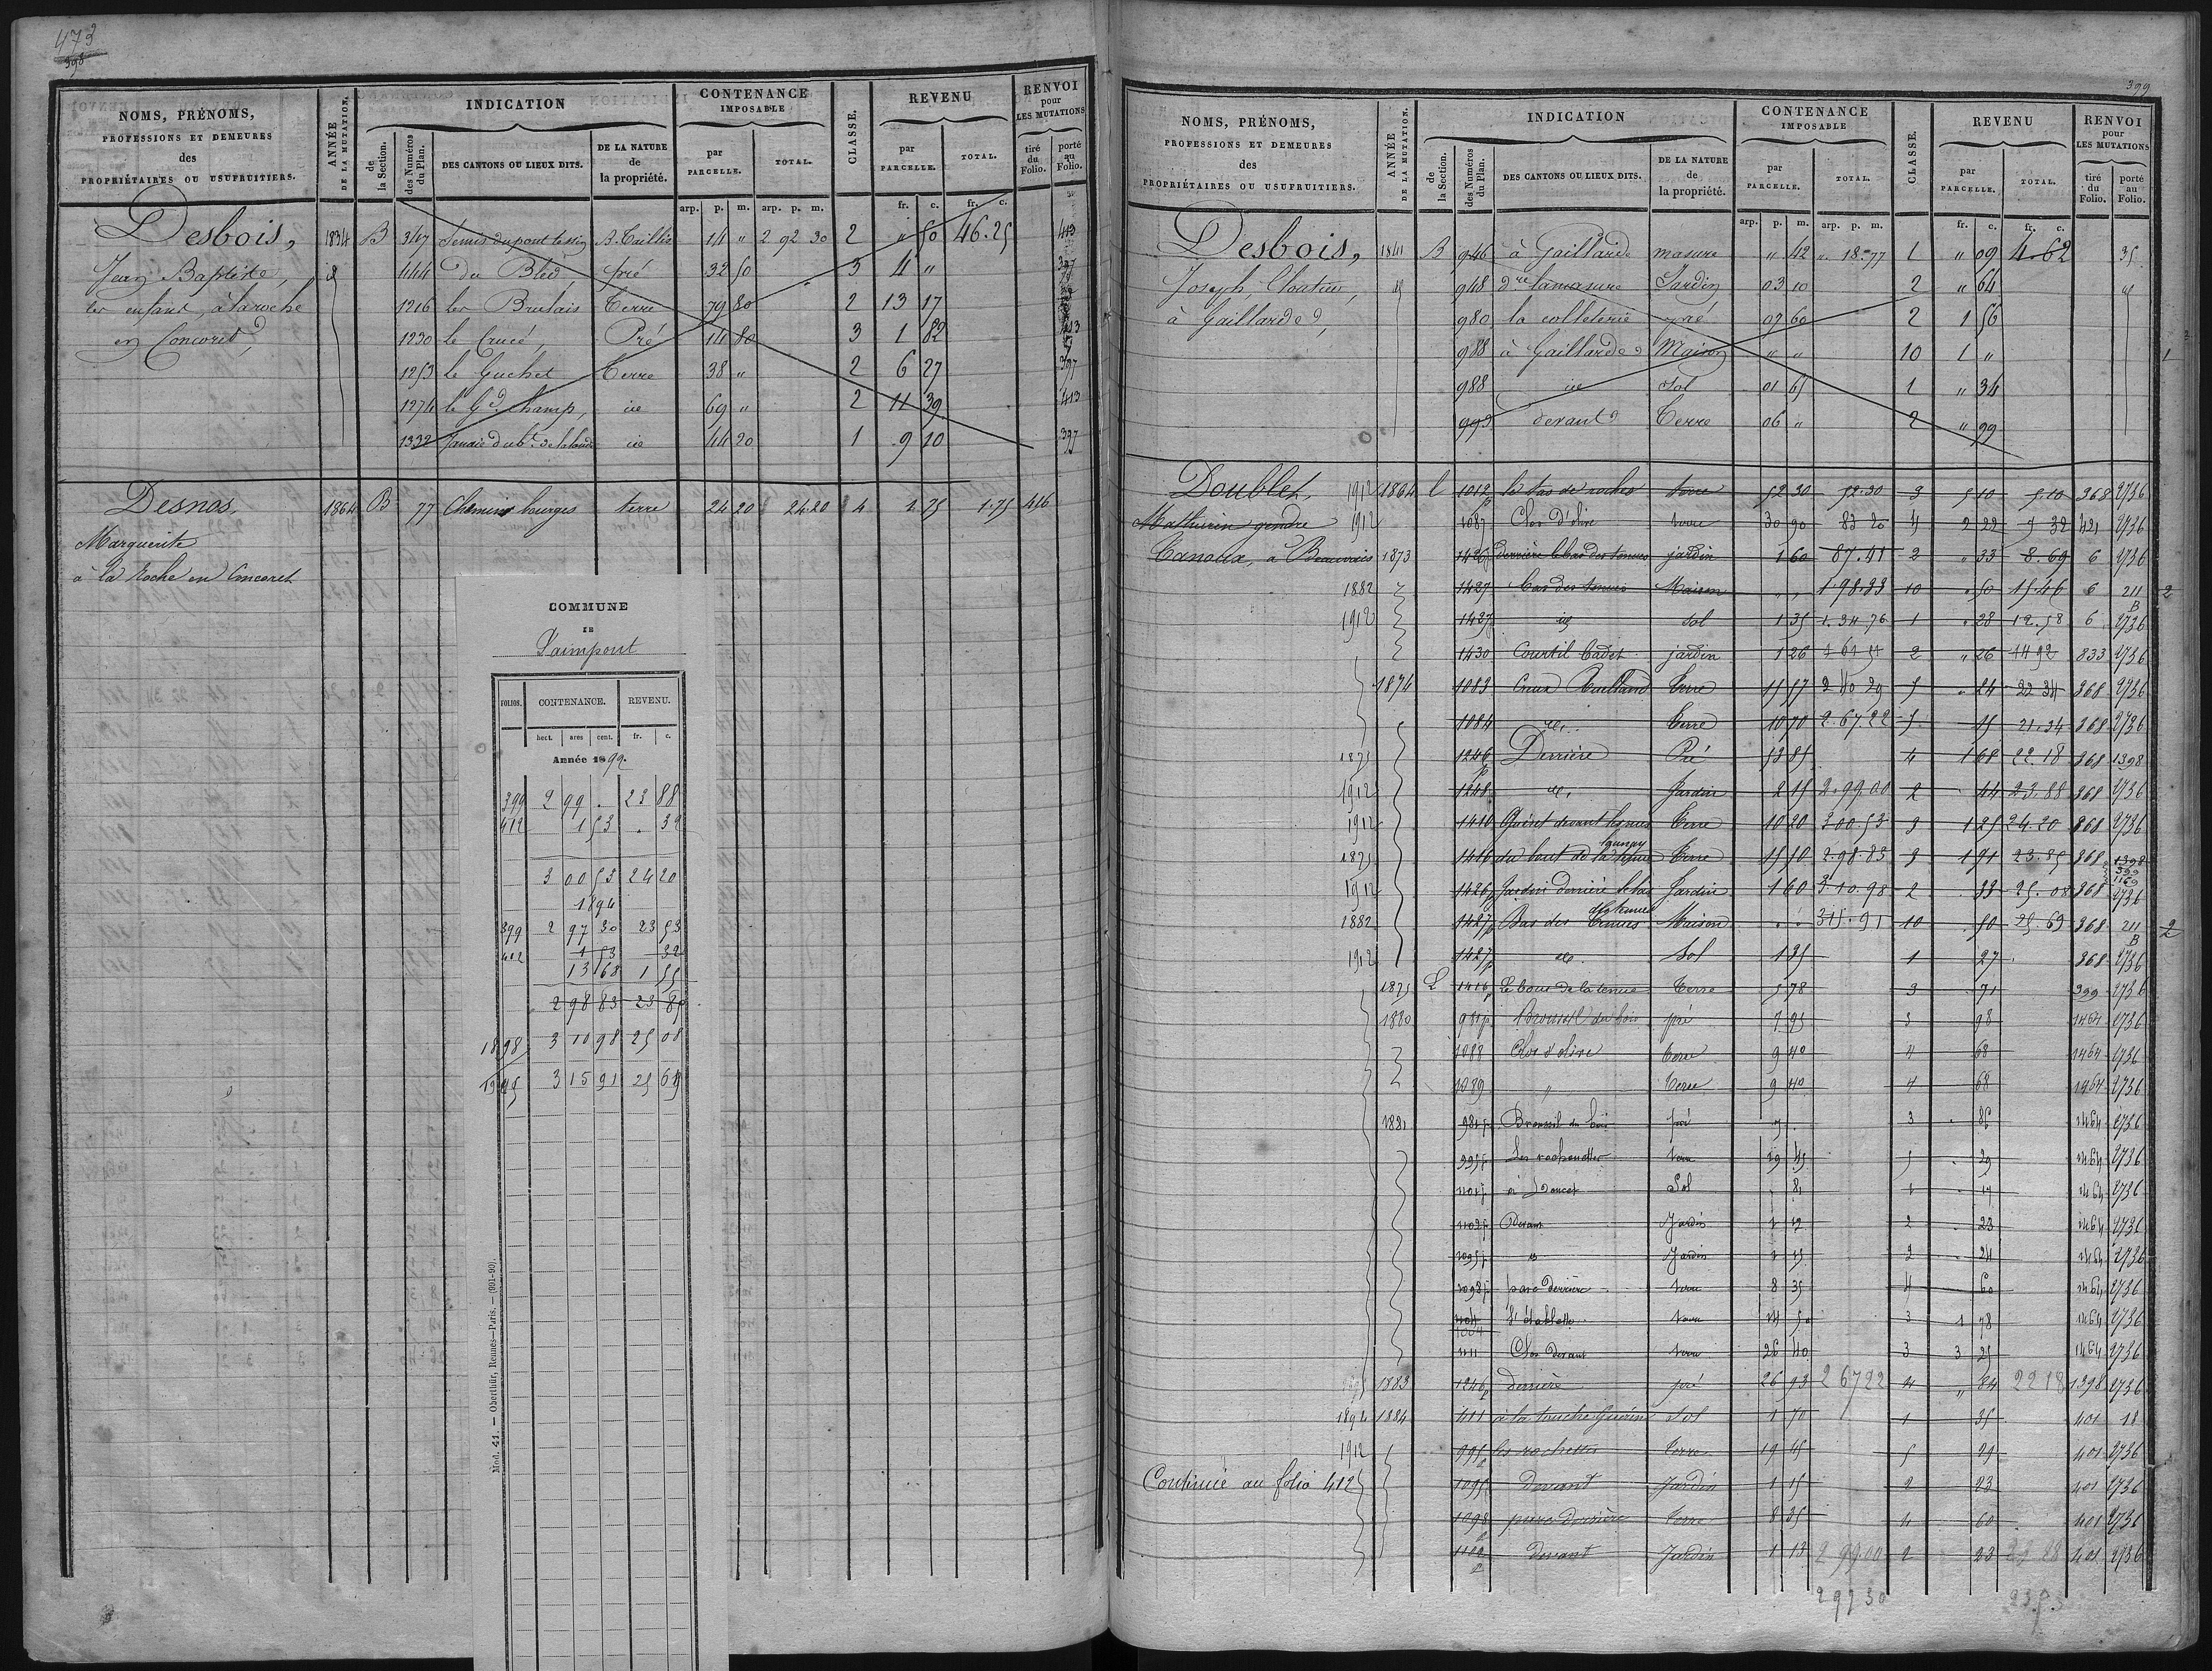 473
398
NOMS, PRÉNOMS,
PROFESSIONS ET DEMEURES
des
PROPRIÉTAIRES OU USUFRUITIERS.
ANNÉE DE LA MUTATION.
INDICATION
de la Section.
des Numéros du Plan.
DES CANTONS OU LIEUX DITS.
DE LA NATURE de la propriété.
CONTENANCE IMPOSABLE
par PARCELLE.
TOTAL.
CLASSE.
REVENU
par PARCELLE.
TOTAL.
RENVOI pour LES MUTATIONS
tiré du Folio.
porté au Folio.
arp. p. m. arp. p. m. fr. c. fr. c.
Desbois, 1834 B 347 B. Taillis 14 " 2 92 30 2 " 50 46.25 413
Jean Baptiste, 444 du Bled pré 32 50 3 4 " 397
les enfans, à la roche 1216 les Brulais Terre 79 80 2 13 17
en Concoret 1230 le Crucé, Pré 14 80 3 1 82 413
1253 le Guchet Terre 38 " 2 6 27 397
1274 le Gd. champ, id 69 " 2 11 39 413
1332 id 44 20 1 9 10 397
Desnos 1864 B 77 Chemins bourges terre 24 20 24.20 4 1.75 1.75 416
Marguerite
à la Roche en Concoret
COMMUNE
DE
Paimpont
FOLIOS. CONTENANCE. REVENU.
hect. ares cent. fr. c.
Année 1892.
399 2 99 . 23 88
412 1 53 . 32
3 00 53 24 20
1894
399 2 97 30 23 53
412 1 53 32
13 68 1 55
2 98 83 23 85
1898 3 10 98 25 08
3 15 91 25 69
Mod. 41. — Oberthür, Rennes—Paris. — (991-90)
399
NOMS, PRÉNOMS,
PROFESSIONS ET DEMEURES
des
PROPRIÉTAIRES OU USUFRUITIERS.
ANNÉE DE LA MUTATION.
INDICATION
de la Section.
des Numéros du Plan.
DES CANTONS OU LIEUX DITS.
DE LA NATURE de la propriété.
CONTENANCE IMPOSABLE
par PARCELLE.
TOTAL.
CLASSE.
REVENU
par PARCELLE.
TOTAL.
RENVOI pour LES MUTATIONS
tiré du Folio.
porté au Folio.
arp. p. m. arp. p. m. fr. c. fr. c.
Desbois, 1841 B 946 à Gaillarde masure " 42 " 18 77 1 " 09 4.62 35
Joseph, Cloutier, 948 Jardin 03 10 2 " 64
à Gaillarde, 980 la colleterie pré 07 60 2 1 56
988 à Gaillarde Maison " " 10 1 " 1
988 id Sol 01 65 1 " 34
993 devant Terre 06 " 2 " 99
Doublet, 1912 1864 1012 p le bas de roches terre 52 30 52.30 3 5 10 5.10 368 2736
Mathurin gendre 1912 1087 Clos d'olive terre 30 90 83 20 4 2 22 7 32 421 2736
à Beauvais 1873 1426p derrière le bas des tenues jardin 1 60 2 " 33 8.69 6 2736
1882 1427 bas des tenues Maison " " 1.98.33 10 " 50 15.46 6 211 B 2
1912 1427 id sol 1 35 1.34 76 1 " 28 12.58 6 2736
1430 Courtil Cadet jardin 1 26 2 " 26 14 92 833 2736
1874 1083 Terre 15 57 2 40 29 5 " 24 22 34 368 2736
1084 id. Terre 10 70 2.67.22 5 15 21.34 368 2736
1875 1246 p Derrière Pré 53 85 4 1 68 22.18 368 1398
1912 1248 id. Jardin 2 15 2.99.00 2 44 23.88 368 2736
1912 1410 Terre 10 20 3 00.53 3 1 25 24.20 368 2736
1875 1416 du bout de la tenue Terre 15 10 2.98.83 3 1 91 23.85 368 1398
1912 1426p Jardin derrière le bas des tenues Jardin 1 60 3.10.98 2 33 25.08 368 2736
1882 1427p Bas des tenues Maison " " 315.91 10 50 25.69 368 211 B 2
1912 1427p id. Sol 1 35 1 27 368 2736
1875 1416p Le bout de la tenue Terre 5 78 3 71 399 2736
1880 981p Broussil du bois pré 7 95 3 98 1464 2736
1088 Clos d'olive terre 9 40 4 68 1464 2736
1089 " Terre 9 40 4 68 1464 2736
1881 981p Broussil du bois pré 7 . 3 86 1464 2736
995p terre 19 45 5 29 1464 2736
Sol . 81 1 17 1464 2736
1102p Devant Jardin 1 12 2 23 1464 2736
1095p id Jardin 1 15 2 24 1464 2736
1098p parc derrière terre 8 35 4 60 1464 2736
1104 terre 14 50 3 1 78 1464 2736
1111 Clos devant terre 26 40 3 3 25 1464 2736
1883 1246p Derrière pré 26 93 2 67 22 4 " 84 22 18 1398 2736
1894 1884 411 à la touche Guérin Sol 1 70 1 35 401 18
1912 995p les rochettes terre 19 45 5 29 401 2736
Continué au folio 412 1095p Devant Jardin 1 15 2 23 401 2736
1098 p parc derrière Terre 8 35 4 60 401 2736
1102 p Devant Jardin 1 13 2 99.00 2 23 23 88 401 2736
2 97 30 23.53